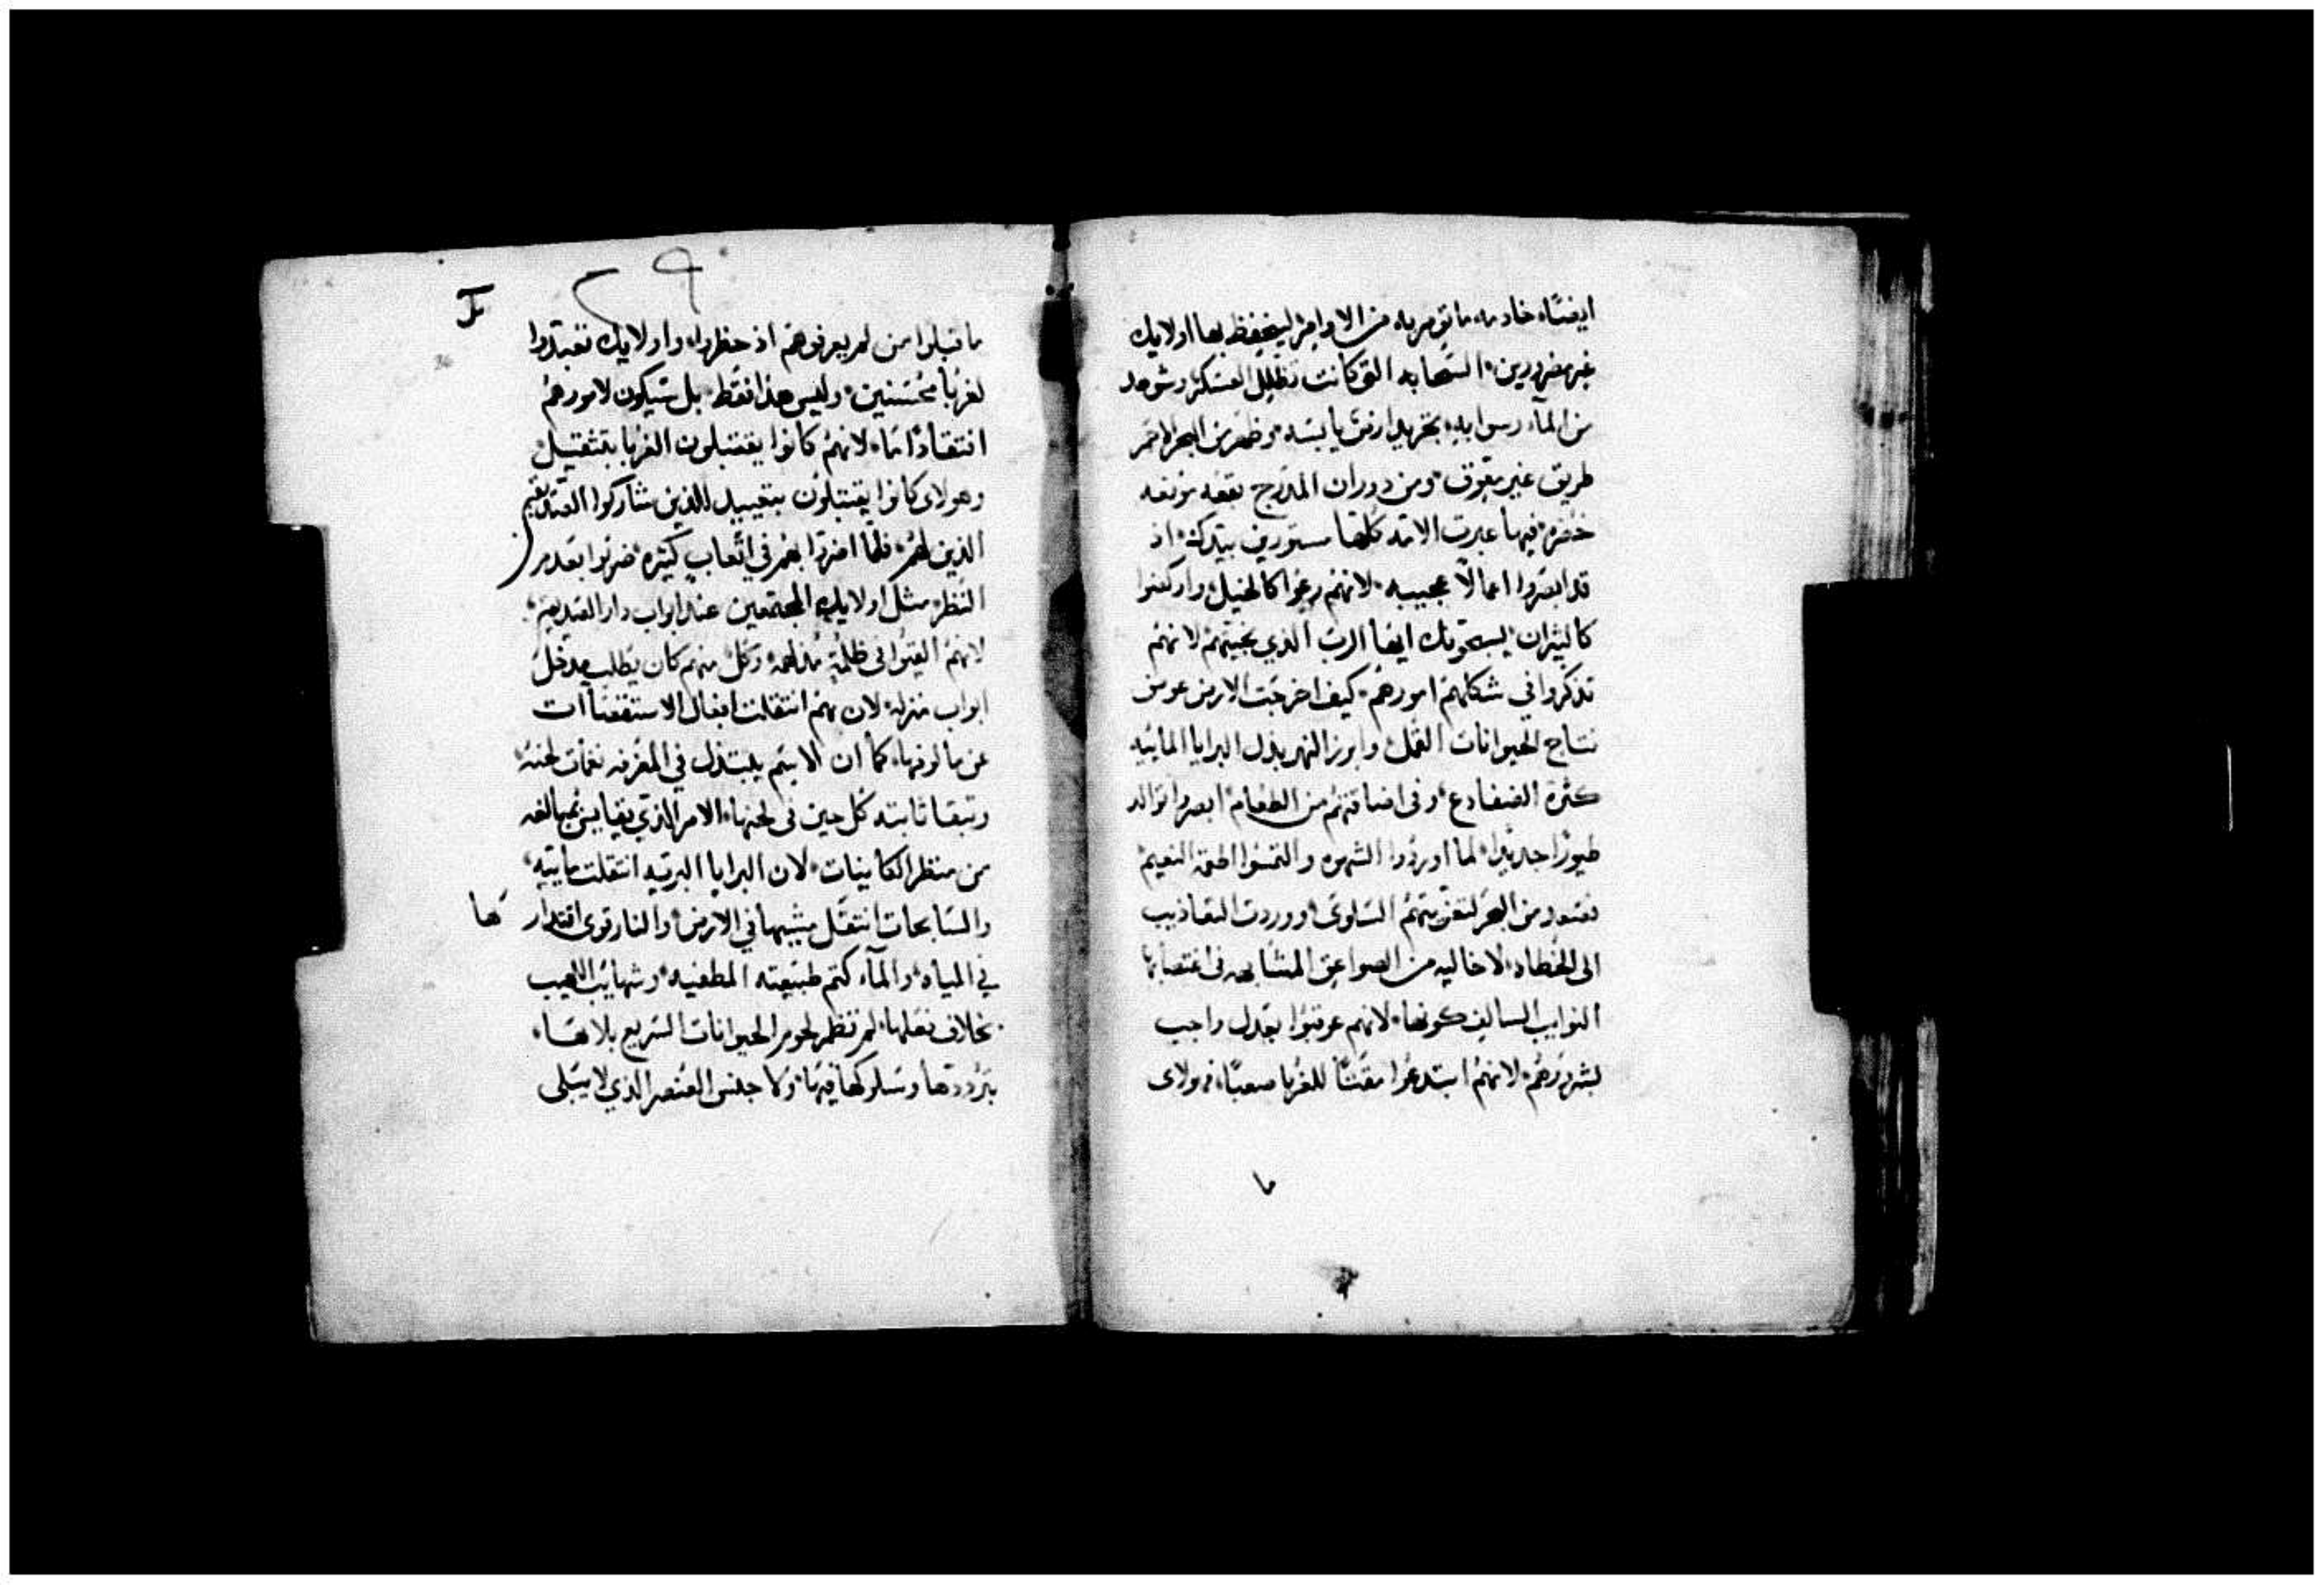 ايضًا، خادمه ما تومر به من الاوامر لينحفظ بها اولايك
غير مضرورين، السحابه التي كانت تظلل العسكر، وشوهد
من المآء رسوا به، بخر يد ارض يابسه، وظهر من البحر الاحمر
طريق غير معوق، ومن دوران المدرج بقعه مونعه
خضره، فيها عبرت الامه كلها مستورين بيدك، اذ
قد ابصروا اعمالًا عجيبه، لانهم رعوا كالخيل، واركضوا
كالثيران، يسبحونك ايها الرب الذي نجيتهم، لانهم
تذكروا في شكلهم امورهم، كيف اخرجت الارض عوض
نتاج الحيوانات القمل، وابرز النهر بدل البرايا المائيه
كثرة الضفادع، وفي اضاقتهم من الطعام، ابصروا توالد
طيورًا جديدًا، لما اوردوا الشهوه والتمسوا اطعمة النعيم،
فصعد من البحر لتعزيتهم السلوى، ووردت التعاذيب
الى الخطاه، لا خاليه من الصواعق المشابهه في اغتصابها
النوايب السالف كونها، لانهم عوقبوا بعدل واجب
لشرورهم، لانهم ابتدعوا مقتًا للغربا صعبًا، فهولاى
ما
ما قبلوا من لم يعرفوهم اذ حظروا، واولايك تعبدوا
لغربا محسنين، وليس هذا فقط، بل سيكون لامورهم
افتقادًا ما، لانهم كانوا يقتبلون الغربا بتثقيل،
وهولاى كانوا يقتبلون بتعييد للذين شاركوا العتد يقيم
الذين لهم، فلما اضروا بهم في اتعاب كثيره، ضربوا بعدم
النظر، مثل اولايك المجتمعين عند ابواب دار الصديق،
لانهم القيوا في ظلمةٍ مدلهمه، وكل منهم كان يطلب مدخل
ابواب منزله، لان بهم انتقلت افعال الاستقصاآت
عن مالوفها، كما ان الاسم يلتبذل في المعزفه نغمات لحنه،
وتبقا ثابته كل حين في لحنها، الامر الذي يقايس بمبالغه
من منظر الكاينات، لان البرايا البريه انتقلت مايية،
والسابحات انتقل مشيها في الارض، والنار قوى اقتدارها
في المياه، والمآء كتم طبيعته المطفيه، وشهايب اللهيب
بخلاف فعلها، لم تنظر لحوم الحيوانات السريع بلاها،
بترددها وسلوكها فيها، ولا جنس العنصر الذي لا يبلى